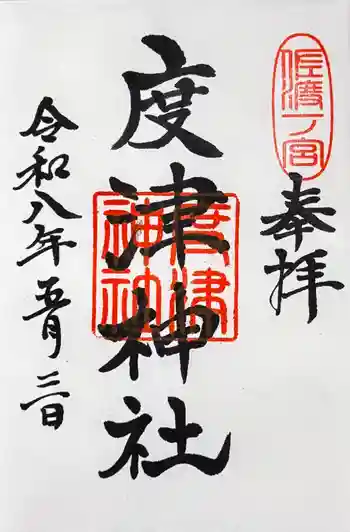 佐渡一ノ宮
奉拝
度津神社
度津神社
令和八年五月三日